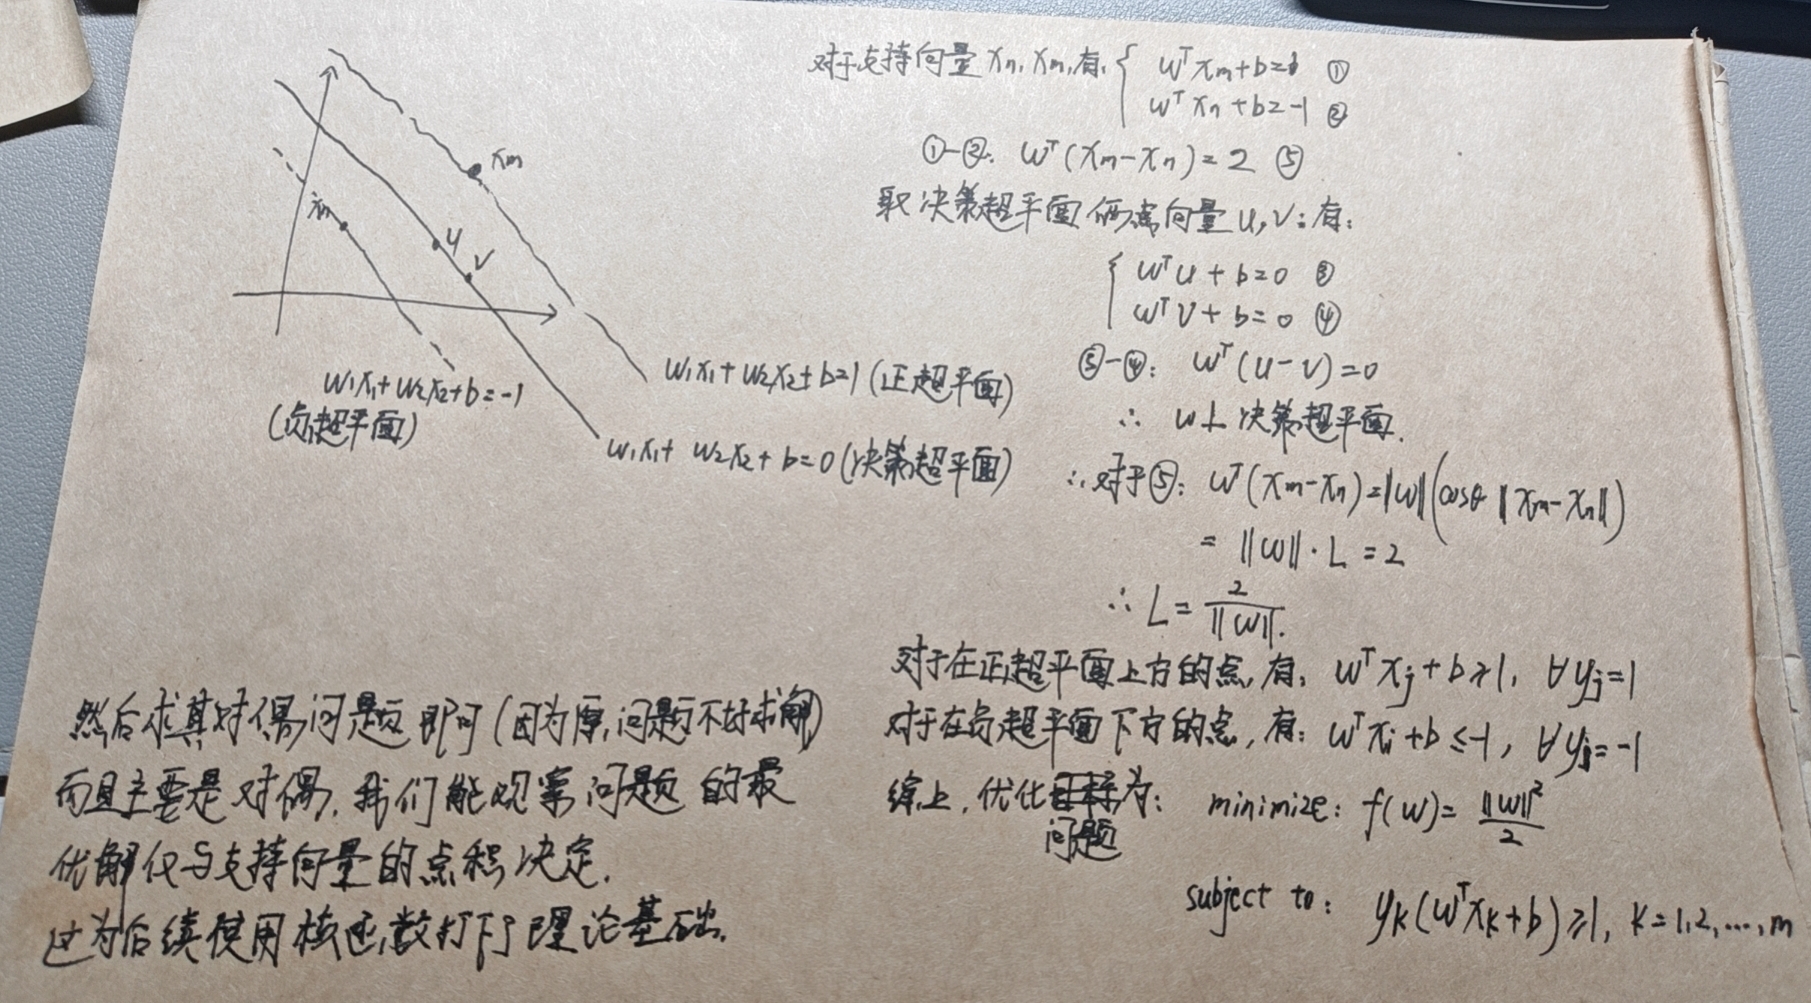 x_m
x_n
u
v
w₁x₁+w₂x₂+b=-1
(负超平面)
w₁x₁+w₂x₂+b=1 (正超平面)
w₁x₁+w₂x₂+b=0 (决策超平面)
对于支持向量 x_n, x_m, 有: { wᵀx_m+b=1 ①
wᵀx_n+b=-1 ②
①-②: wᵀ(x_m-x_n)=2 ⑤
取决策超平面两点向量 u, v: 有:
{ wᵀu+b=0 ③
wᵀv+b=0 ④
③-④: wᵀ(u-v)=0
∴ w⊥决策超平面.
∴对于⑤: wᵀ(x_m-x_n)=‖w‖(cosθ ‖x_m-x_n‖)
= ‖w‖·L = 2
∴ L = 2/‖w‖.
对于在正超平面上方的点, 有: wᵀx_j+b≥1, ∀y_j=1
对于在负超平面下方的点, 有: wᵀx_i+b≤-1, ∀y_i=-1
综上, 优化目标为: minimize: f(w)=‖w‖²/2
问题
subject to: y_k(wᵀx_k+b)≥1, k=1,2,...,m
然后求其对偶问题即可 (因为原问题不好求解)
而且主要是对偶, 我们能观察问题的最
优解仅与支持向量的点积决定.
这为后续使用核函数打下了理论基础.